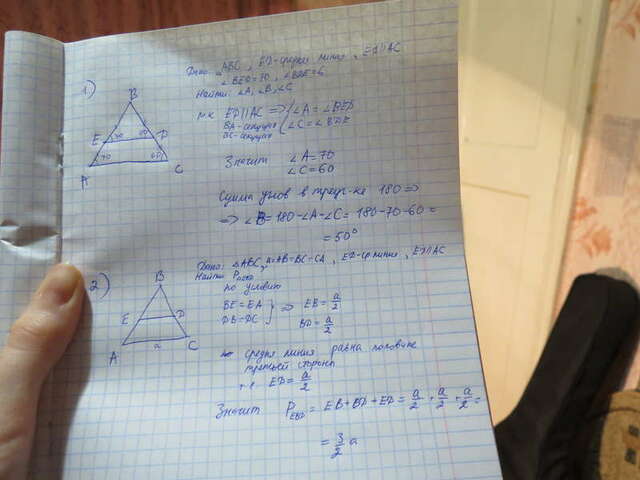 1)
Дано: △ABC, ED-средняя линия, ED||AC
∠BED=70, ∠BDE=6
Найти: ∠A, ∠B, ∠C
B
E 70 60 D
70 60
A C
т.к. ED||AC => { ∠A = ∠BED
BA-секущая
BC-секущая { ∠C = ∠BDE
Значит ∠A=70
∠C=60
Сумма углов в треуг-ке 180 =>
=> ∠B=180-∠A-∠C= 180-70-60=
=50°
2)
Дано: △ABC, a=AB=BC=CA, ED-ср линия, ED||AC
Найти
по условию
B
E D
A a C
BE=EA
DB=DC } => EB=a/2
BD=a/2
средняя линия равна половине
третьей стороны
т.е. ED=a/2
Значит P EBD = EB+BD+ED=a/2+a/2+a/2=
=3/2 a